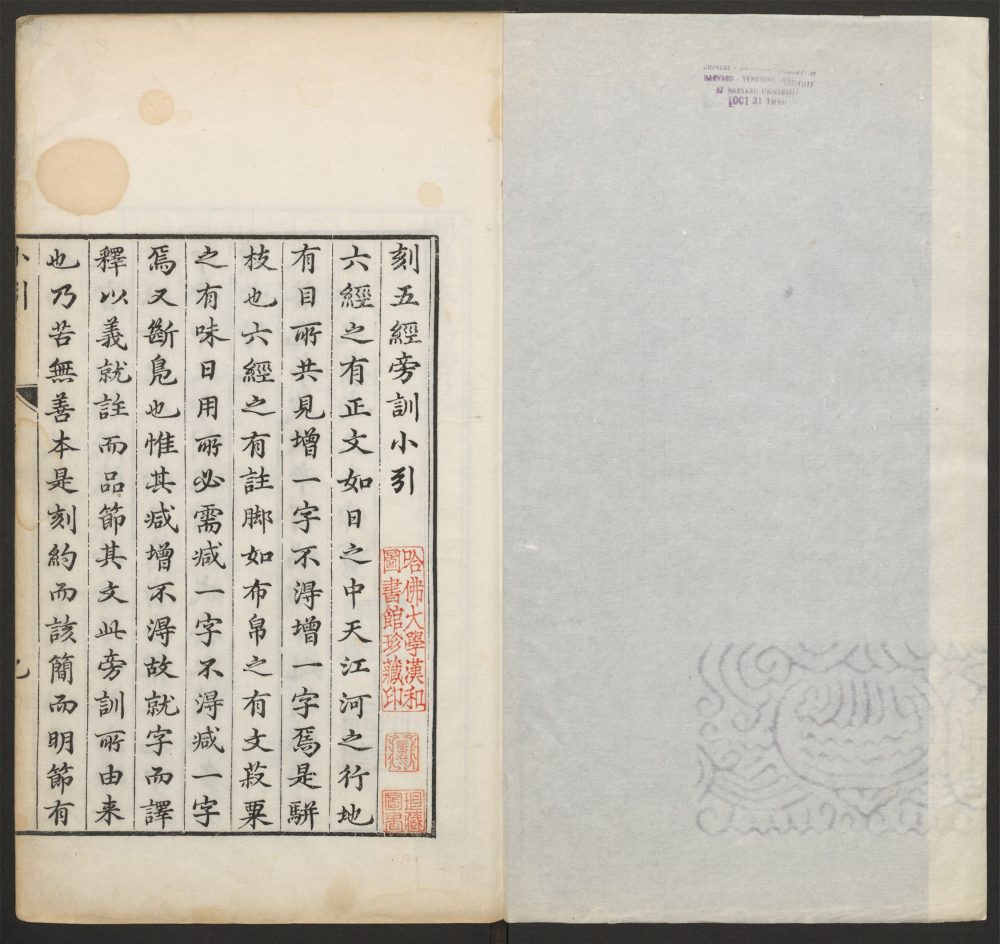 HARVARD-YENCHING INSTITUTE
AT HARVARD UNIVERSITY
OCT 31 1940
刻五經旁訓小引
哈佛大學漢和
圖書館珍藏印
六經之有正文如日之中天江河之行地
有目所共見增一字不得增一字焉是駢
枝也六經之有註脚如布帛之有文菽粟
之有味日用所必需减一字不得减一字
焉又斷鳬也惟其减增不得故就字而譯
釋以義就註而品節其文此旁訓所由来
也乃苦無善本是刻約而該簡而明節有
小引